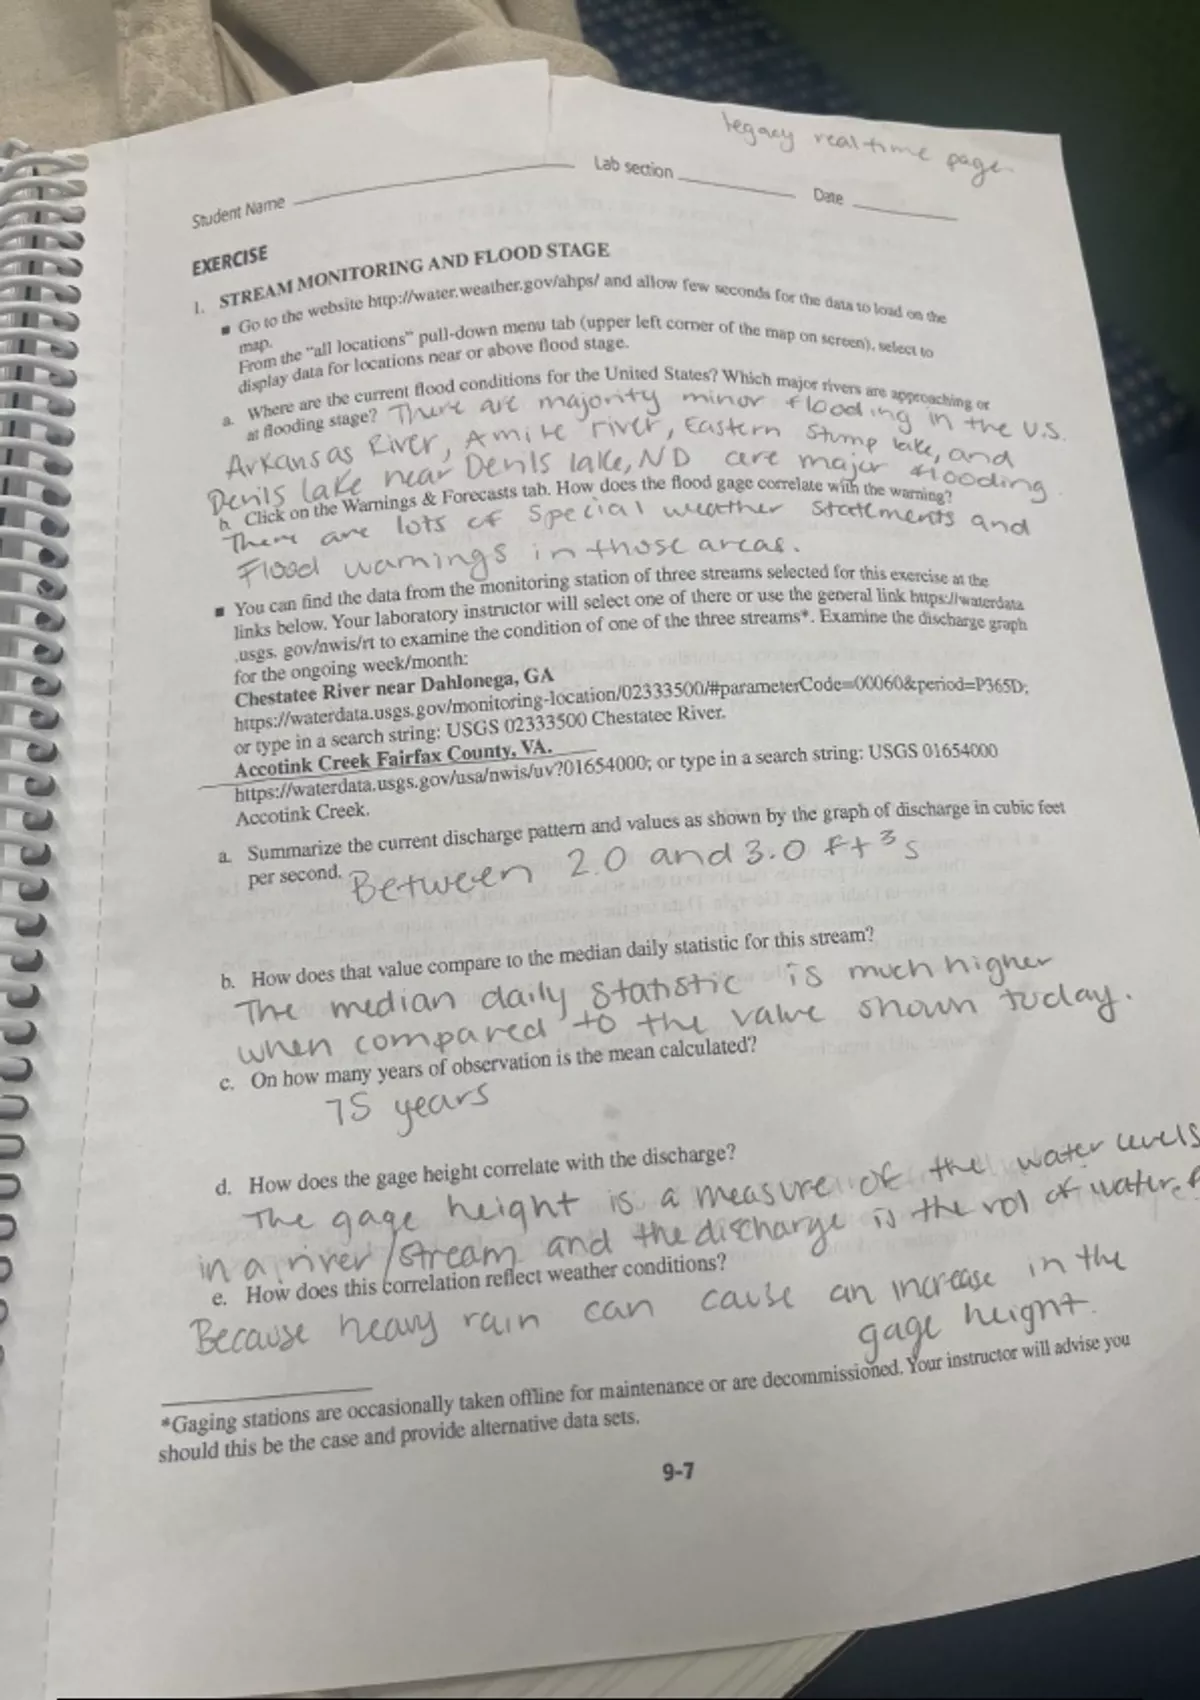 legacy real time page
Student Name Lab section Date
EXERCISE
1. STREAM MONITORING AND FLOOD STAGE
■ Go to the website http://water.weather.gov/ahps/ and allow few seconds for the data to load on the
map.
From the "all locations" pull-down menu tab (upper left corner of the map on screen), select to
display data for locations near or above flood stage.
a. Where are the current flood conditions for the United States? Which major rivers are approaching or
at flooding stage? There are majority minor flooding in the U.S.
Arkansas River, Amite river, Eastern Stump lake, and
Devils lake near Devils lake, ND are major flooding.
b. Click on the Warnings & Forecasts tab. How does the flood gage correlate with the warning?
There are lots of special weather statements and
Flood warnings in those areas.
■ You can find the data from the monitoring station of three streams selected for this exercise at the
links below. Your laboratory instructor will select one of there or use the general link https://waterdata
.usgs. gov/nwis/rt to examine the condition of one of the three streams*. Examine the discharge graph
for the ongoing week/month:
Chestatee River near Dahlonega, GA
https://waterdata.usgs.gov/monitoring-location/02333500/#parameterCode=00060&period=P365D;
or type in a search string: USGS 02333500 Chestatee River.
Accotink Creek Fairfax County, VA.
https://waterdata.usgs.gov/usa/nwis/uv?01654000; or type in a search string: USGS 01654000
Accotink Creek.
a. Summarize the current discharge pattern and values as shown by the graph of discharge in cubic feet
per second. Between 2.0 and 3.0 ft³s
b. How does that value compare to the median daily statistic for this stream?
The median daily statistic is much higher
when compared to the value shown today.
c. On how many years of observation is the mean calculated?
75 years
d. How does the gage height correlate with the discharge?
The gage height is a measure of the water levels
in a river/stream and the discharge is the vol of water
e. How does this correlation reflect weather conditions?
Because heavy rain can cause an increase in the
gage height.
*Gaging stations are occasionally taken offline for maintenance or are decommissioned. Your instructor will advise you
should this be the case and provide alternative data sets.
9-7